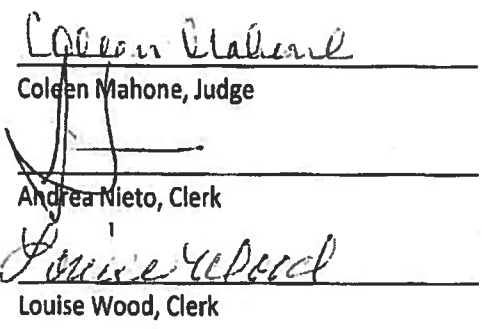 Coleen Mahone
Coleen Mahone, Judge
Andrea Nieto, Clerk
Louise Wood
Louise Wood, Clerk